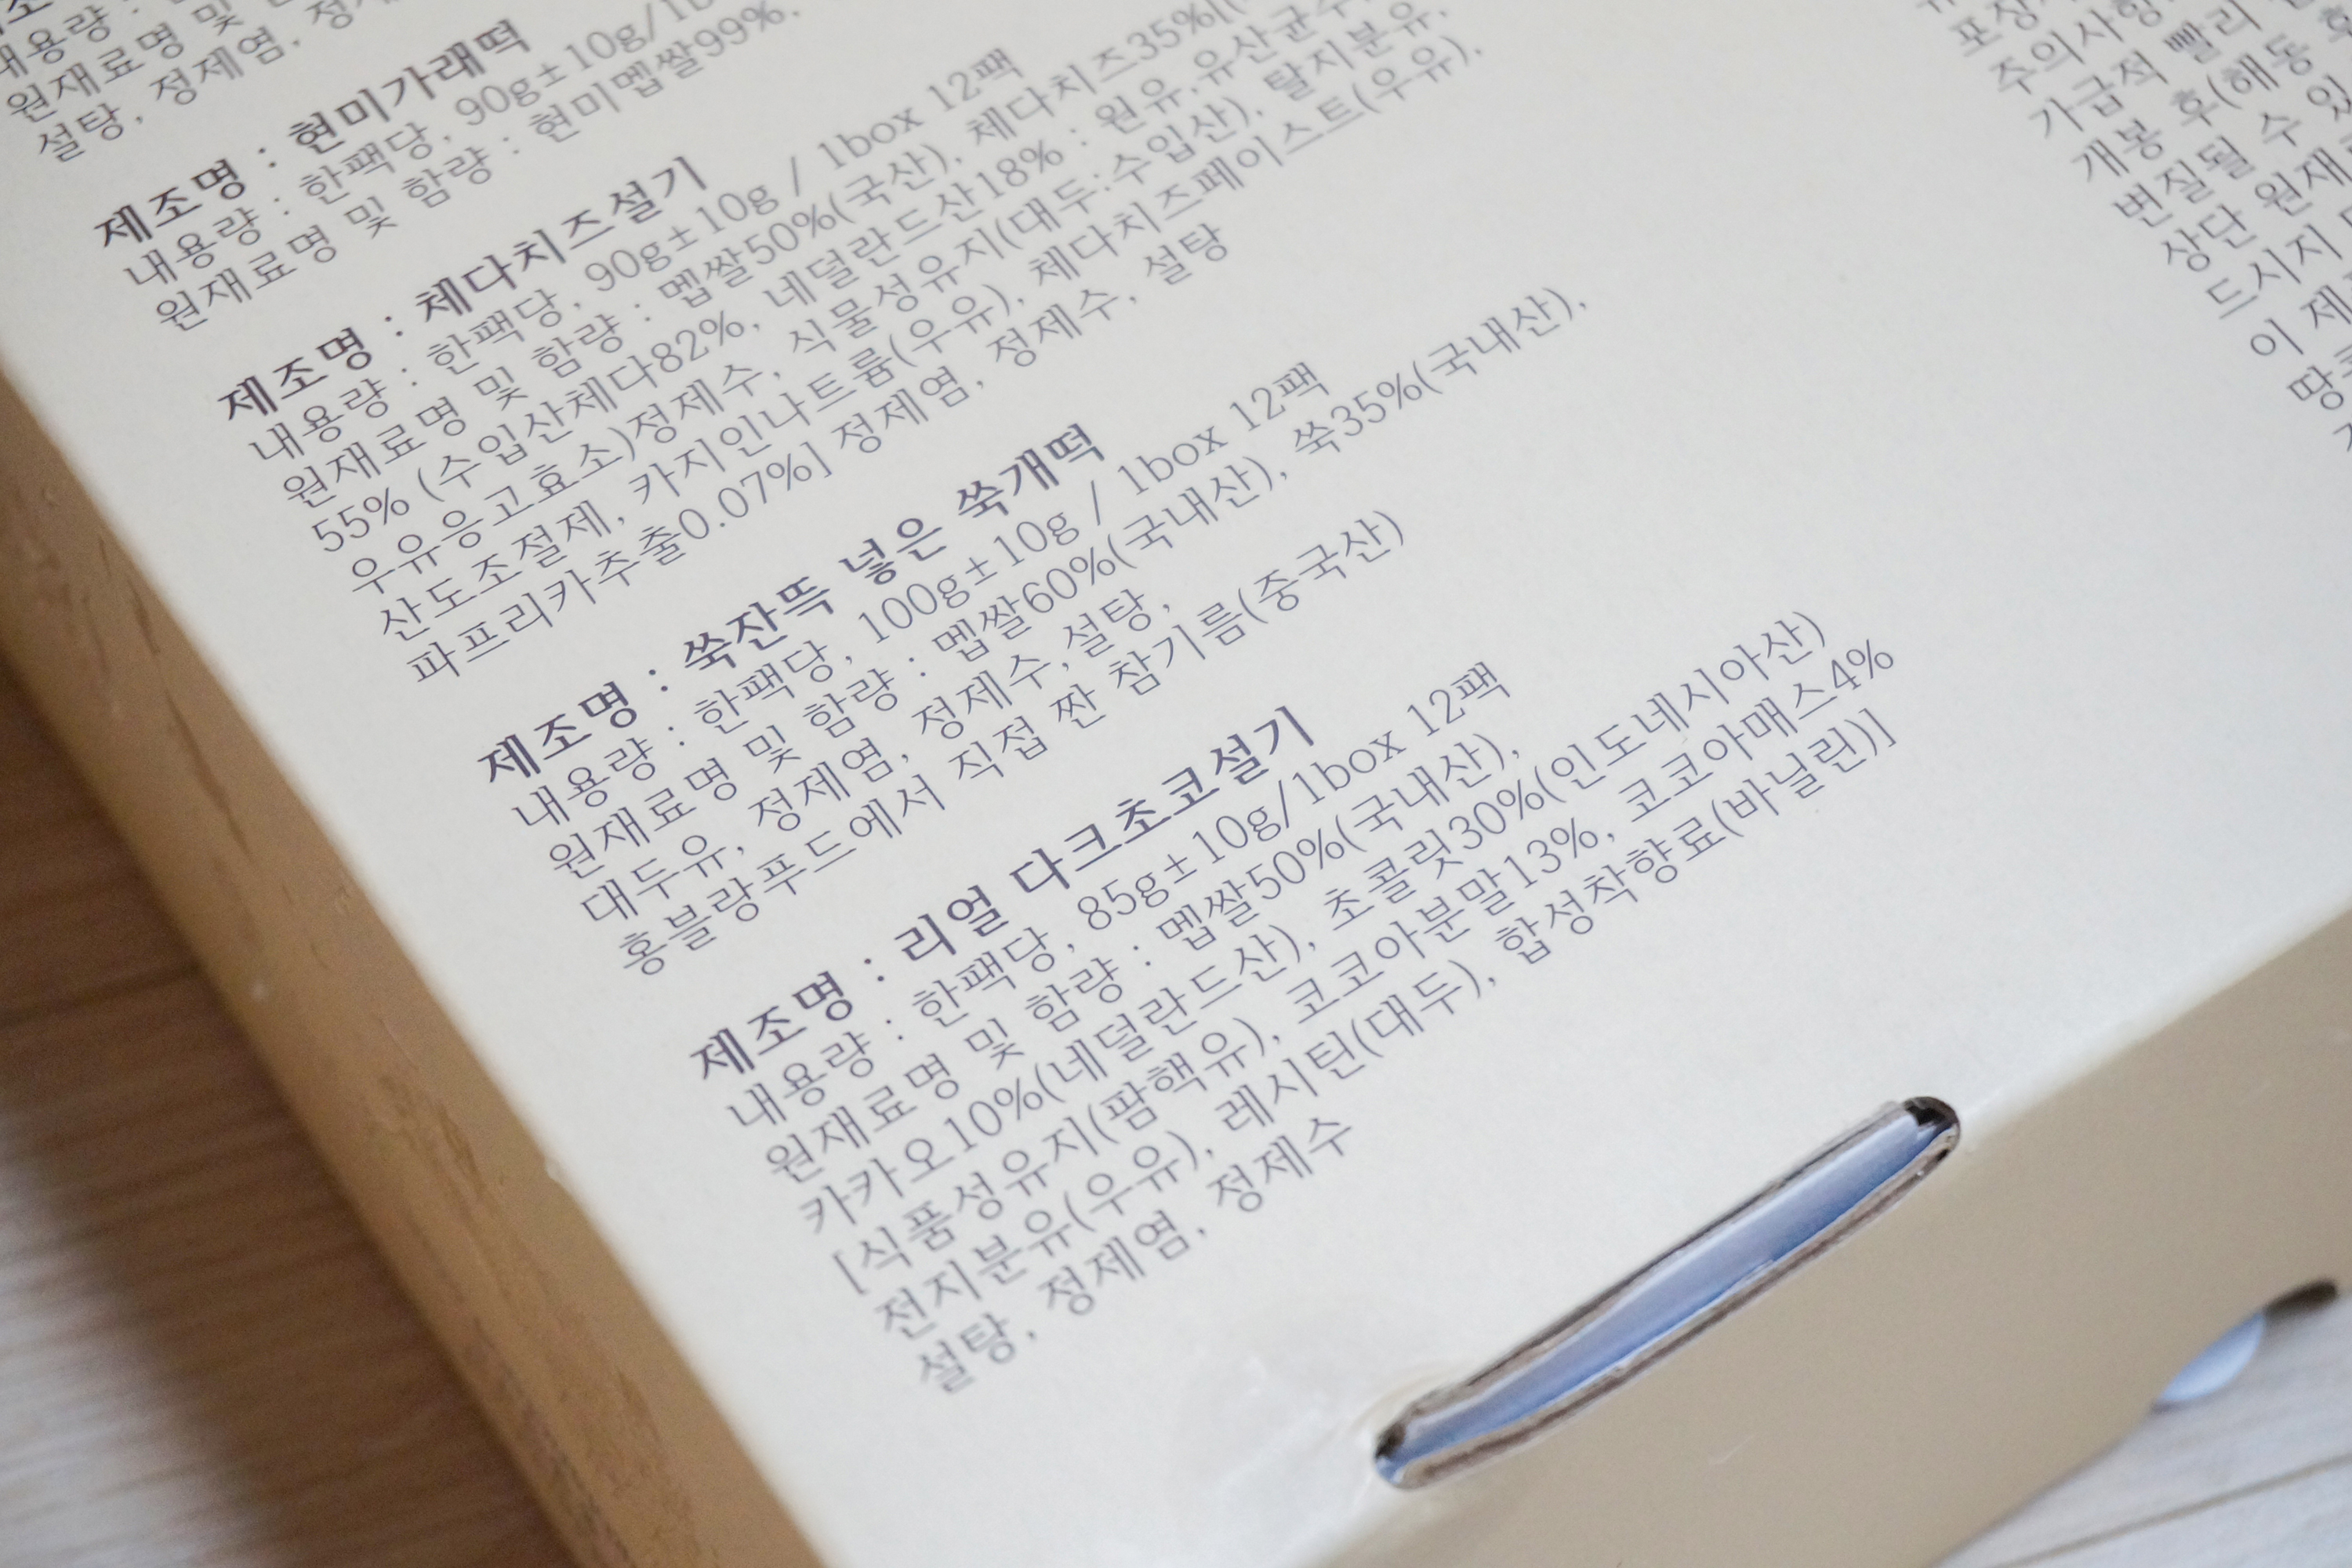 내용량 :
원재료명 및
설탕, 정제염,
제조명 : 현미가래떡
내용량 : 한팩당, 90g±10g/1b
원재료명 및 함량 : 현미멥쌀99%.
제조명 : 체다치즈설기
내용량 : 한팩당, 90g±10g / 1box 12팩
원재료명 및 함량 : 멥쌀50%(국산), 체다치즈35%[(
55% (수입산체다82%, 네덜란드산18% : 원유,유산균주,
우유응고효소)정제수, 식물성유지(대두:수입산), 탈지분유,
산도조절제, 카지인나트륨(우유), 체다치즈페이스트(우유),
파프리카추출0.07%] 정제염, 정제수, 설탕
제조명 : 쑥잔뜩 넣은 쑥개떡
내용량 : 한팩당, 100g±10g / 1box 12팩
원재료명 및 함량 : 멥쌀60%(국내산), 쑥35%(국내산),
대두유, 정제염, 정제수,설탕,
홍블랑푸드에서 직접 짠 참기름(중국산)
제조명 : 리얼 다크초코설기
내용량 : 한팩당, 85g±10g/1box 12팩
원재료명 및 함량 : 멥쌀50%(국내산),
카카오10%(네덜란드산), 초콜릿30%(인도네시아산)
[식품성유지(팜핵유), 코코아분말13%, 코코아매스4%
전지분유(우유), 레시틴(대두), 합성착향료(바닐린)]
설탕, 정제염, 정제수
포장
주의사항
가급적 빨리
개봉 후(해
변질될 수
상단 원재
드시지
이 제
땅